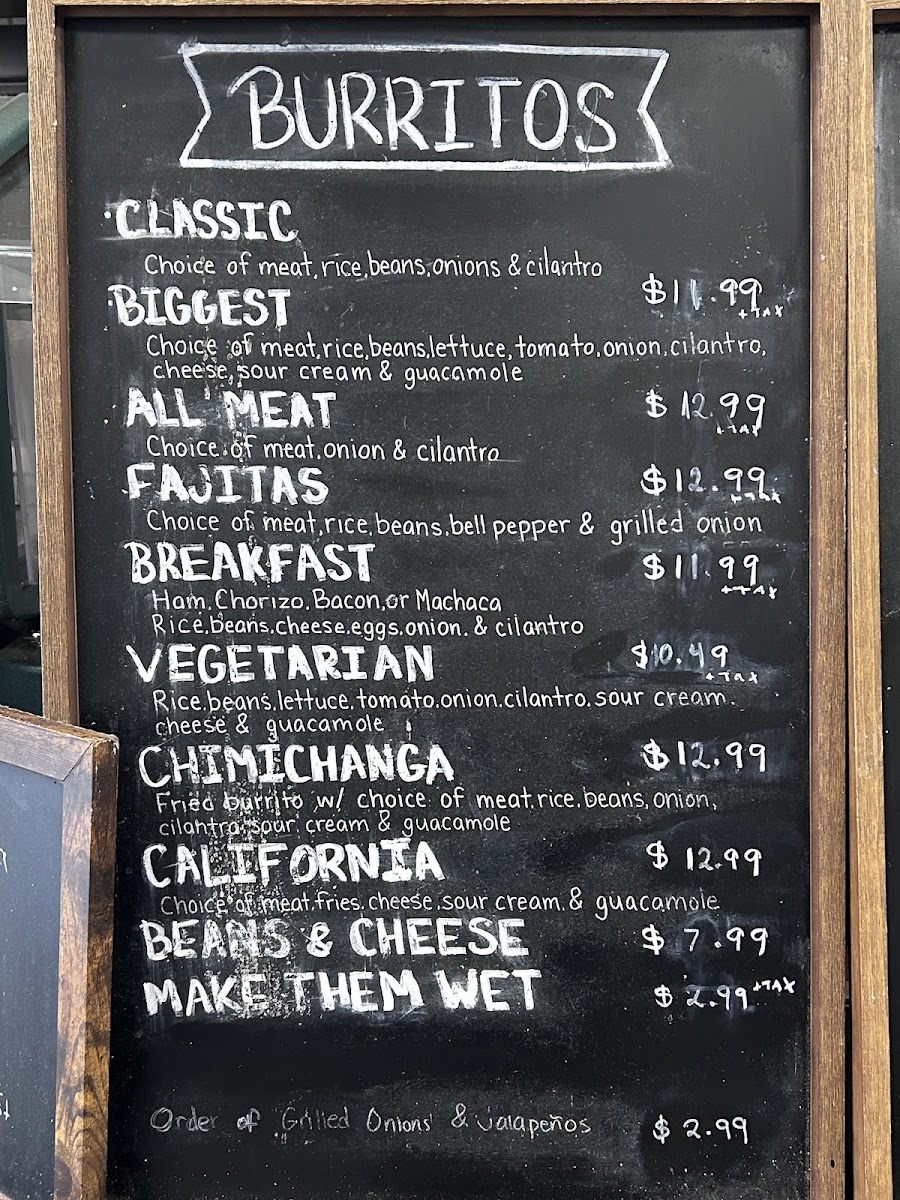 BURRITOS
CLASSIC
Choice of meat, rice, beans, onions & cilantro
BIGGEST $11.99 +TAX
Choice of meat, rice, beans, lettuce, tomato, onion, cilantro,
cheese, sour cream & guacamole
ALL MEAT $12.99 +TAX
Choice of meat, onion & cilantro
FAJITAS $12.99 +TAX
Choice of meat, rice, beans, bell pepper & grilled onion
BREAKFAST $11.99 +TAX
Ham, Chorizo, Bacon, or Machaca
Rice, beans, cheese, eggs, onion, & cilantro
VEGETARIAN $10.49 +TAX
Rice, beans, lettuce, tomato, onion, cilantro, sour cream,
cheese & guacamole
CHIMICHANGA $12.99
Fried burrito w/ choice of meat, rice, beans, onion,
cilantro, sour cream & guacamole
CALIFORNIA $12.99
Choice of meat, fries, cheese, sour cream, & guacamole
BEANS & CHEESE $7.99
MAKE THEM WET $2.99 +TAX
Order of Grilled Onions & Jalapeños $2.99